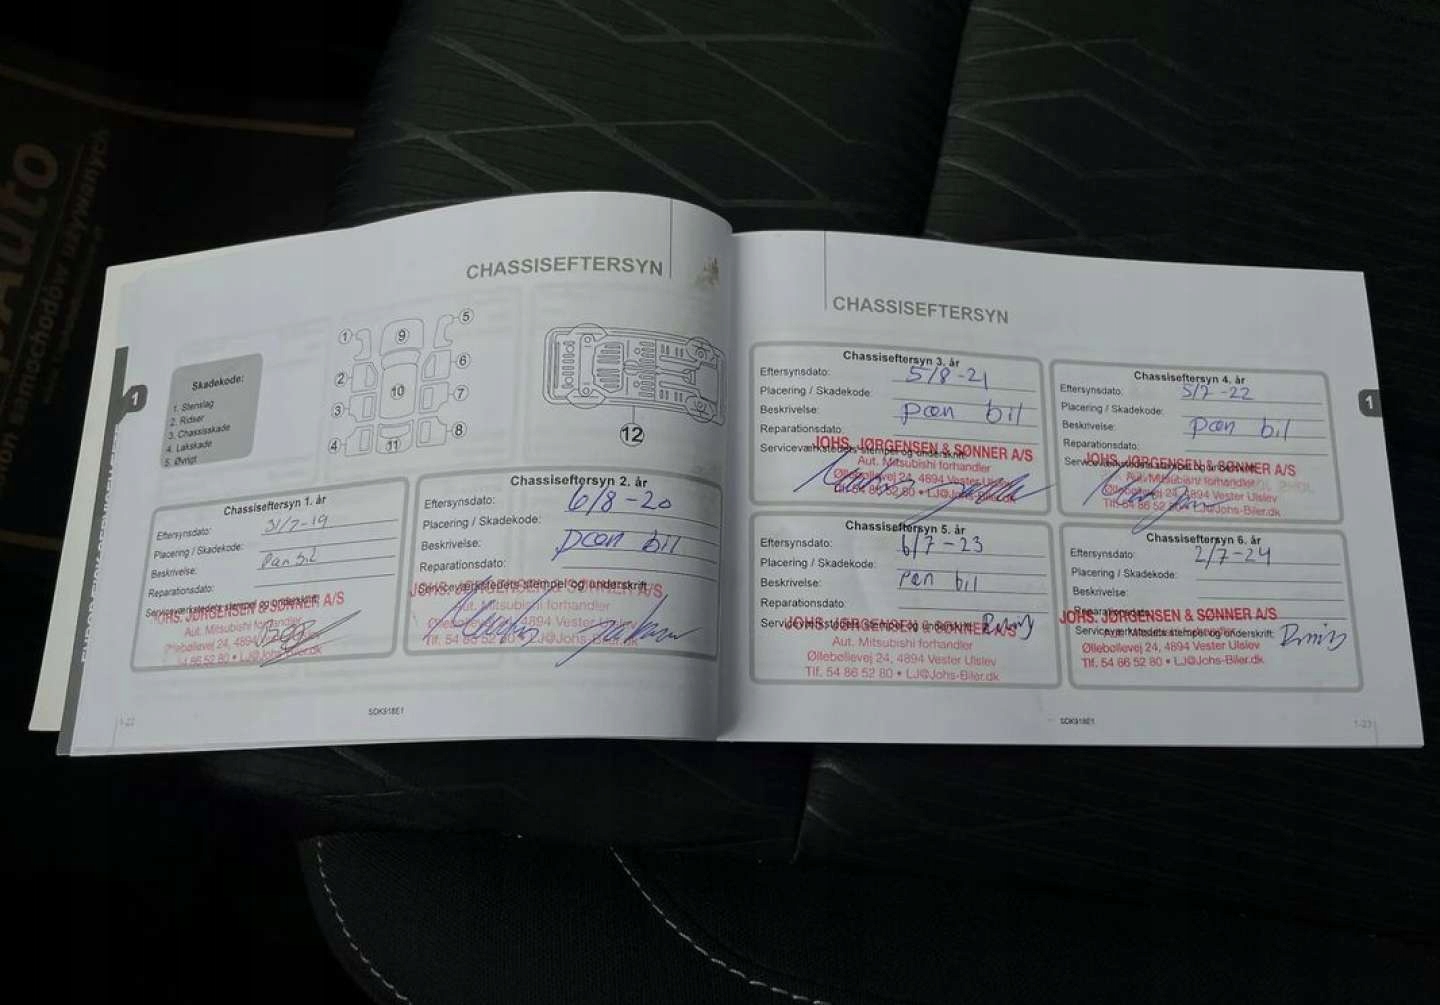 Auto
samochodów używanych
CHASSISEFTERSYN
Skadekode:
1. Stenslag
2. Ridser
3. Chassisskade
4. Lakskade
5. Øvrigt
1
1
2
3
4
9
10
11
5
6
7
8
12
Chassiseftersyn 1. år
Eftersynsdato: 31/7-19
Placering / Skadekode:
Beskrivelse: Pæn bil
Reparationsdato:
Serviceværkstedets stempel og underskrift
JOHS. JØRGENSEN & SØNNER A/S
Aut. Mitsubishi forhandler
Øllebøllevej 24, 4894
54 86 52 80 • LJ@Johs-Biler.dk
Chassiseftersyn 2. år
Eftersynsdato: 6/8-20
Placering / Skadekode:
Beskrivelse: Pæn bil
Reparationsdato:
Serviceværkstedets stempel og underskrift
JOHS. JØRGENSEN & SØNNER A/S
Aut. Mitsubishi forhandler
Øllebøllevej 24, 4894 Vester
Tlf. 54 86 52 80 • LJ@Johs-Biler.dk
1-22
SDK918E1
CHASSISEFTERSYN
Chassiseftersyn 3. år
Eftersynsdato: 5/8-21
Placering / Skadekode:
Beskrivelse: Pæn bil
Reparationsdato:
Serviceværkstedets stempel og underskrift
JOHS. JØRGENSEN & SØNNER A/S
Aut. Mitsubishi forhandler
Øllebøllevej 24, 4894 Vester Ulslev
Tlf. 54 86 52 80 • LJ@Johs-Biler.dk
Chassiseftersyn 4. år
Eftersynsdato: 5/7-22
Placering / Skadekode:
Beskrivelse: Pæn bil
Reparationsdato:
Serviceværkstedets stempel og underskrift
JOHS. JØRGENSEN & SØNNER A/S
Aut. Mitsubishi forhandler
Øllebøllevej 24, 4894 Vester Ulslev
Tlf. 54 86 52 80 • LJ@Johs-Biler.dk
1
Chassiseftersyn 5. år
Eftersynsdato: 6/7-23
Placering / Skadekode:
Beskrivelse: Pæn bil
Reparationsdato:
Serviceværkstedets stempel og underskrift
JOHS. JØRGENSEN & SØNNER A/S
Aut. Mitsubishi forhandler
Øllebøllevej 24, 4894 Vester Ulslev
Tlf. 54 86 52 80 • LJ@Johs-Biler.dk
Chassiseftersyn 6. år
Eftersynsdato: 2/7-24
Placering / Skadekode:
Beskrivelse:
Reparationsdato:
JOHS. JØRGENSEN & SØNNER A/S
Serviceværkstedets stempel og underskrift:
Øllebøllevej 24, 4894 Vester Ulslev
Tlf. 54 86 52 80 • LJ@Johs-Biler.dk
SDK918E1
1-23